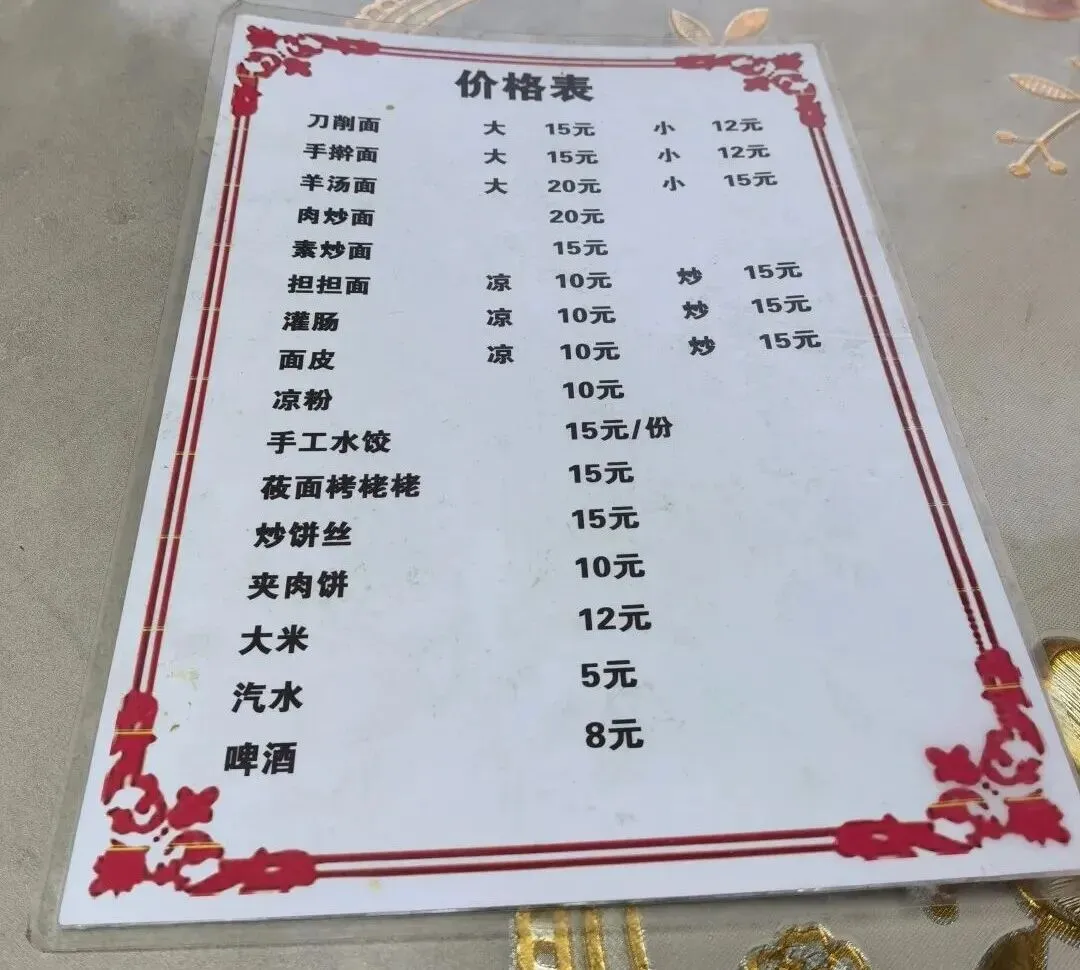 价格表
刀削面 大 15元 小 12元
手擀面 大 15元 小 12元
羊汤面 大 20元 小 15元
肉炒面 20元
素炒面 15元
担担面 凉 10元 炒 15元
灌肠 凉 10元 炒 15元
面皮 凉 10元 炒 15元
凉粉 10元
手工水饺 15元/份
莜面栲栳栳 15元
炒饼丝 15元
夹肉饼 10元
大米 12元
汽水 5元
啤酒 8元